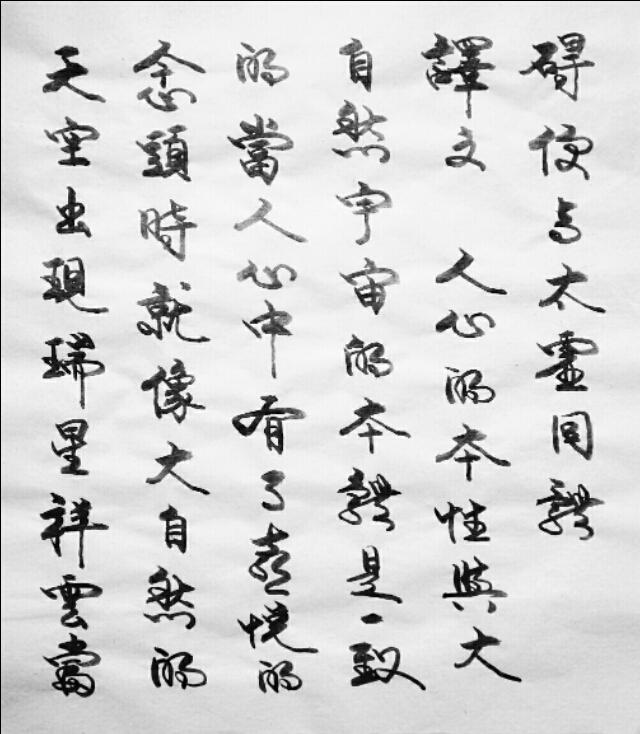 碍便与太虛同體
譯文 人心的本性與大
自然宇宙的本體是一致
的當人心中有了喜悅的
念頭時就像大自然的
天空出現瑞星祥雲當